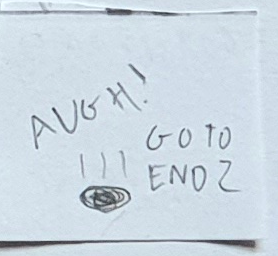 AUGH!
GO TO
END2